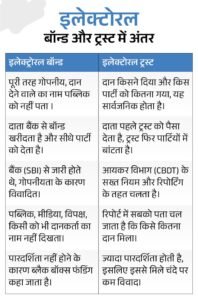 इलेक्टोरल
बॉन्ड और ट्रस्ट में अंतर
इलेक्ट्रोरल बॉन्ड
इलेक्टोरल ट्रस्ट
पूरी तरह गोपनीय, दान
देने वाले का नाम पब्लिक
को नहीं पता ।
दान किसने दिया और किस
पार्टी को कितना गया, यह
सार्वजनिक होता है।
दाता बैंक से बॉन्ड
खरीदता है और सीधे पार्टी
को देता है।
दाता पहले ट्रस्ट को पैसा
देता है, ट्रस्ट फिर पार्टियों में
बांटता है।
बैंक (SBI) से जारी होते
थे, गोपनीयता के कारण
विवादित।
आयकर विभाग (CBDT) के
सख्त नियम और रिपोर्टिंग
के तहत चलता है।
पब्लिक, मीडिया, विपक्ष,
किसी को भी दानकर्ता का
नाम नहीं दिखता।
रिपोर्ट में सबको पता चल
जाता है कि किसे कितना
दान मिला।
पारदर्शिता नहीं होने के
कारण ब्लैक बॉक्स फंडिंग
कहा जाता है।
ज्यादा पारदर्शिता होती है,
इसलिए इससे मिले चंदे पर
कम विवाद।